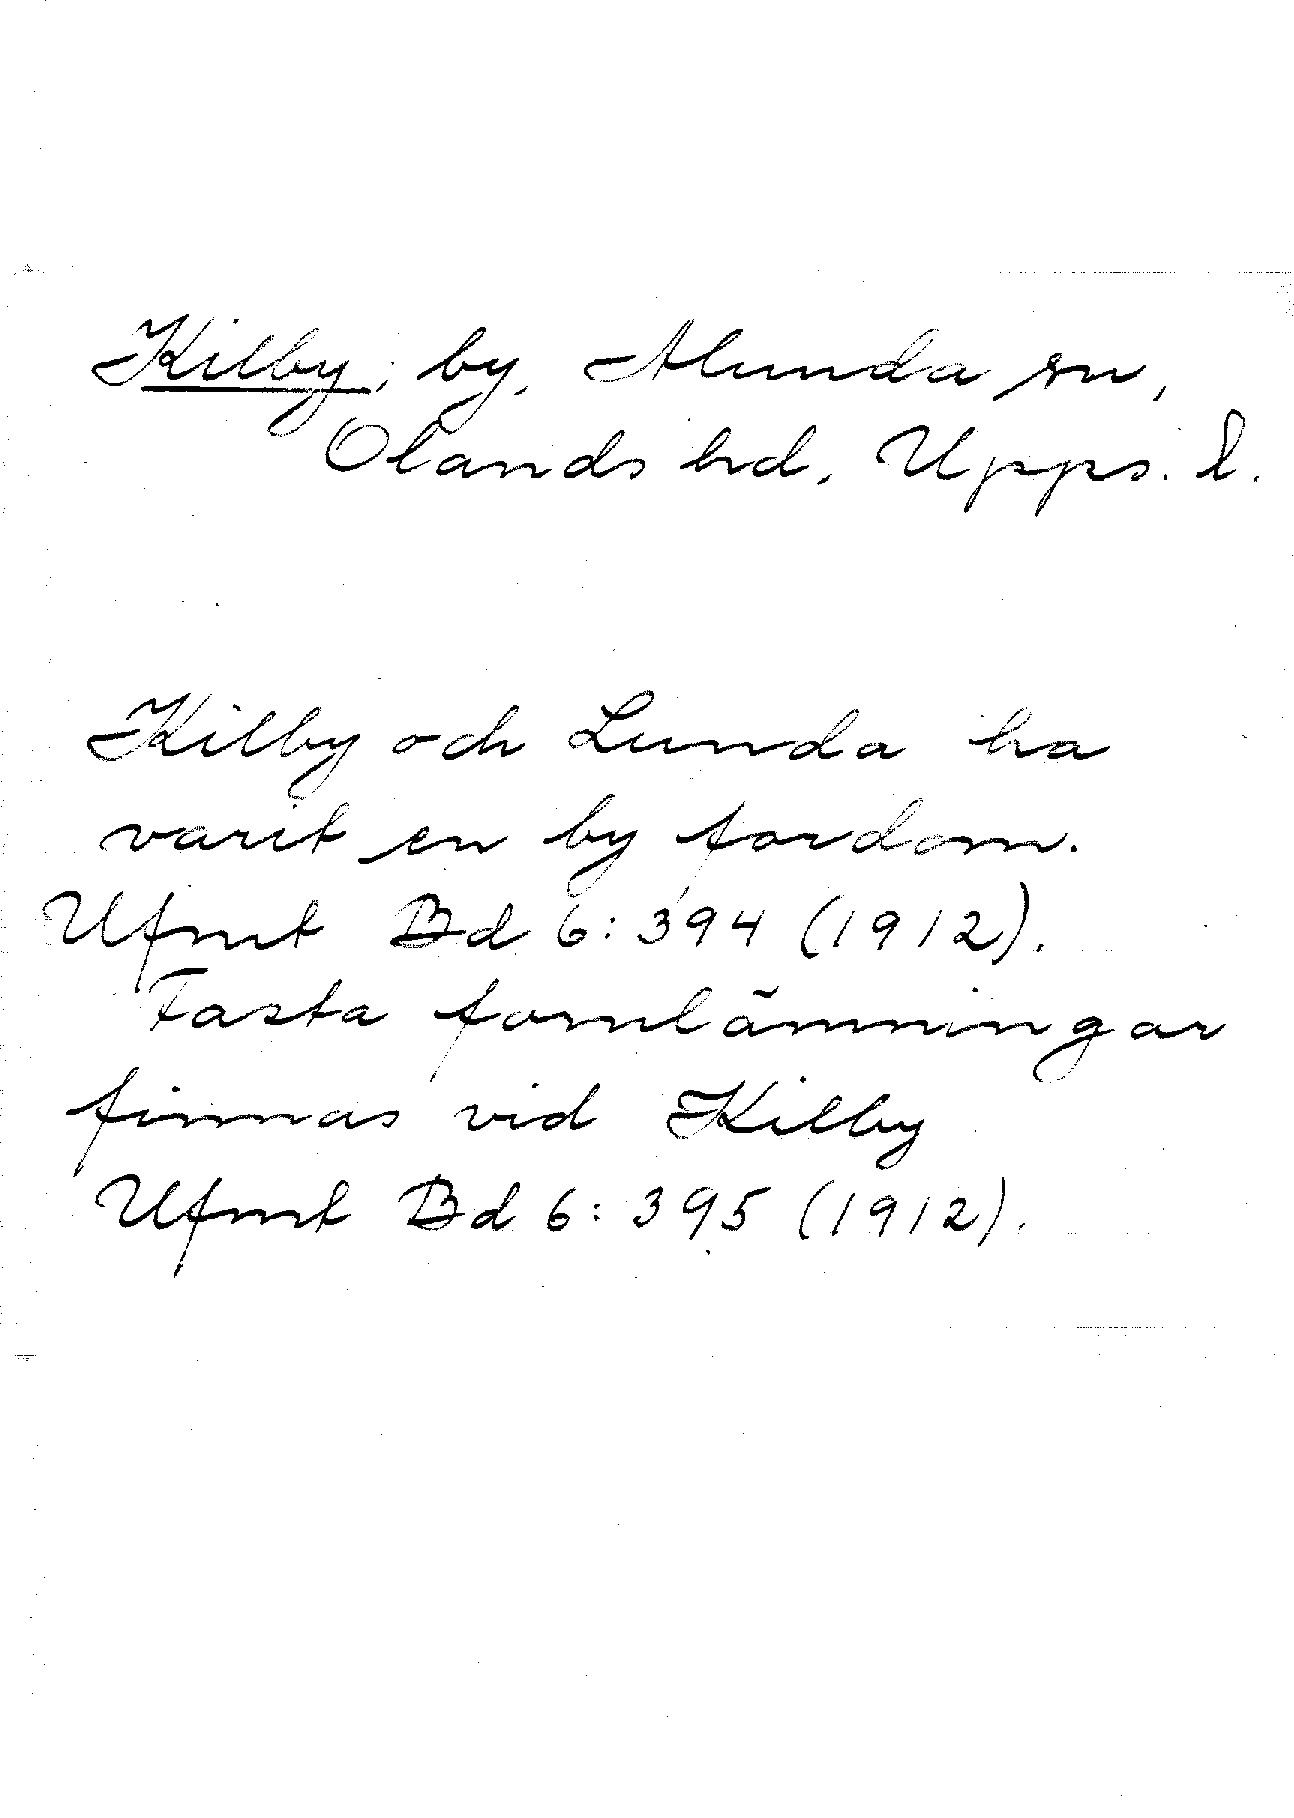 Kilby, by, Alunda sn,
Olands hd, Upps. l.
Kilby och Lunda ha
varit en by fordom.
Ufmt Bd 6: 394 (1912).
Fasta fornlämningar
finnas vid Kilby
Ufmt Bd 6: 395 (1912).